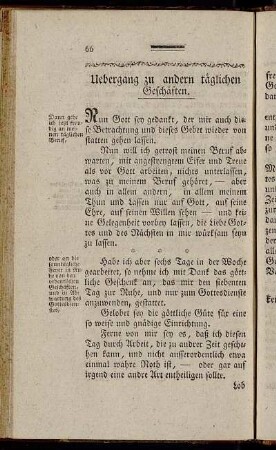 66
Uebergang zu andern täglichen
Geschäften.
Nun Gott sey gedankt, der mir auch die-
se Betrachtung und dieses Gebet wieder von
statten gehen lassen.
Nun will ich getrost meinen Beruf ab-
warten, mit angestrengtem Eifer und Treue
als vor Gott arbeiten, nichts unterlassen,
was zu meinem Beruf gehöret, — aber
auch in allem andern, in allem meinem
Thun und Lassen nur auf Gott, auf seine
Ehre, auf seinen Willen sehen — und keine
Gelegenheit vorbey lassen, die Liebe Got-
tes und des Nächsten in mir würksam seyn
zu lassen.
Habe ich aber sechs Tage in der Woche
gearbeitet, so nehme ich mit Dank das gött-
liche Geschenk an, das mir den siebenten
Tag zur Ruhe, und nur zum Gottesdienste
anzuwenden, gestattet.
Gelobet sey die göttliche Güte für eine
so weise und gnädige Einrichtung.
Ferne von mir sey es, daß ich diesen
Tag durch Arbeit, die zu andrer Zeit gesche-
hen kann, und nicht ausserordentlich etwa
einmal wahre Noth ist, — oder gar auf
irgend eine andre Art entheiligen sollte.
Lob
ich
an mei-
nen täglichen
Beruf,
oder an die